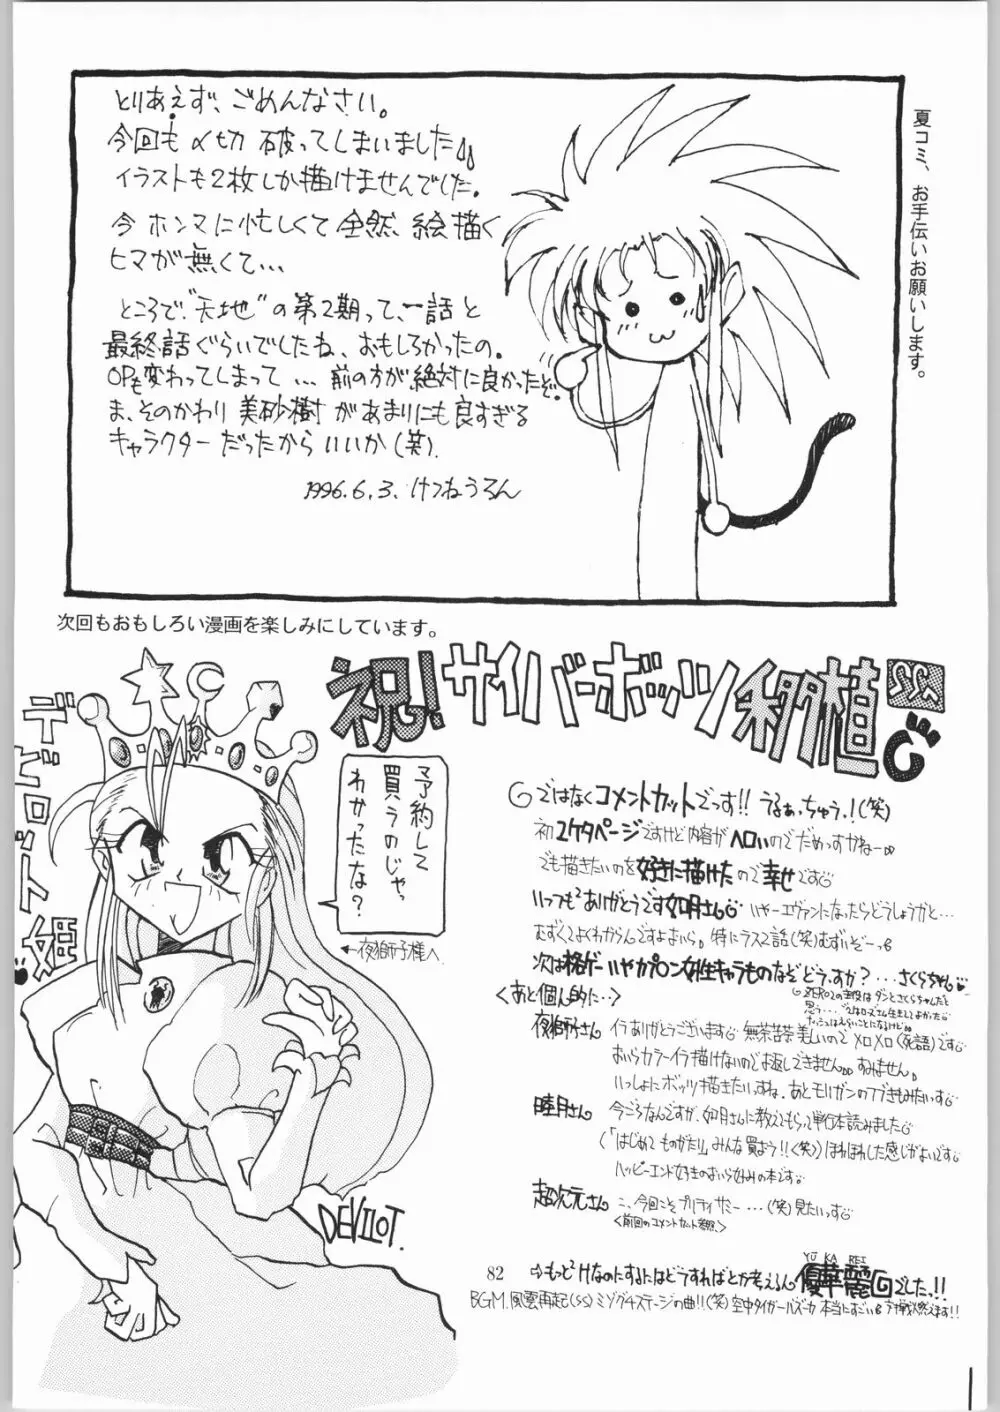 とりあえず、ごめんなさい。
今回も〆切 破ってしまいました
イラストも2枚しか描けませんでした。
今 ホンマに忙しくて 全然、絵描く
ヒマが無くて…
ところで、"天地"の第2期って、一話と
最終話ぐらいでしたね、おもしろかったの。
OPも変わってしまって… 前の方が絶対に良かったぞ。
ま、そのかわり 美砂樹があまりにも良すぎる
キャラクターだったから いいか(笑).
1996.6.3. けつねうろん
夏コミ、お手伝いお願いします。
次回もおもしろい漫画を楽しみにしています。
祝!サイバーボッツ移植
デビロット姫
予約して
買うのじゃっ
わかったな?
←夜獅子様へ
DEVILOT.
ではなくコメントカットでっす!! うるぁっちゅう!(笑)
初2ケタページですけど内容がヘロいのでだめっすかねー
でも描きたいのを好きに描けたので幸せです
いつも²ありがとうです如月さん いやーエヴァンになったらどうしょうかと…
むずくてよくわからんですよおいら。特にラス2話(笑)むずいぞーっ
次は格ゲーいやカプコン女性キャラものなぞどうすか?…さくらちゃん
ZERO2の主役はダンとさくらちゃんだと
思う…
<あと個人的に…>
夜獅子さん イラありがとうございます 無茶苦茶美しいのでメロメロ(死語)です
おいらカラーイラ描けないのでお返しできません。すみません。
いっしょにボッツ描きたいすね。あとモリガンの
睦月さん 今ごろなんですが、如月さんに教えてもらって単行本読みました
(「はじめてものがたり」みんな買よう!!(笑)) ほれぼれした感じがよいです
ハッピーエンド好きのおいら好みの本です
超次元さん こ、今回こそプリティサミー…(笑)見たいっす
<前回のコメントカット参照>
82
⇨もっと²けなのにするにはどうすればとか考えるん
YU KA REI
優華麗
でした。!!
BGM.風雲再起(SS)ミヅグチステージの曲!!(笑)空中タイガールズーカ 本当にすごい 対戦燃えます!!